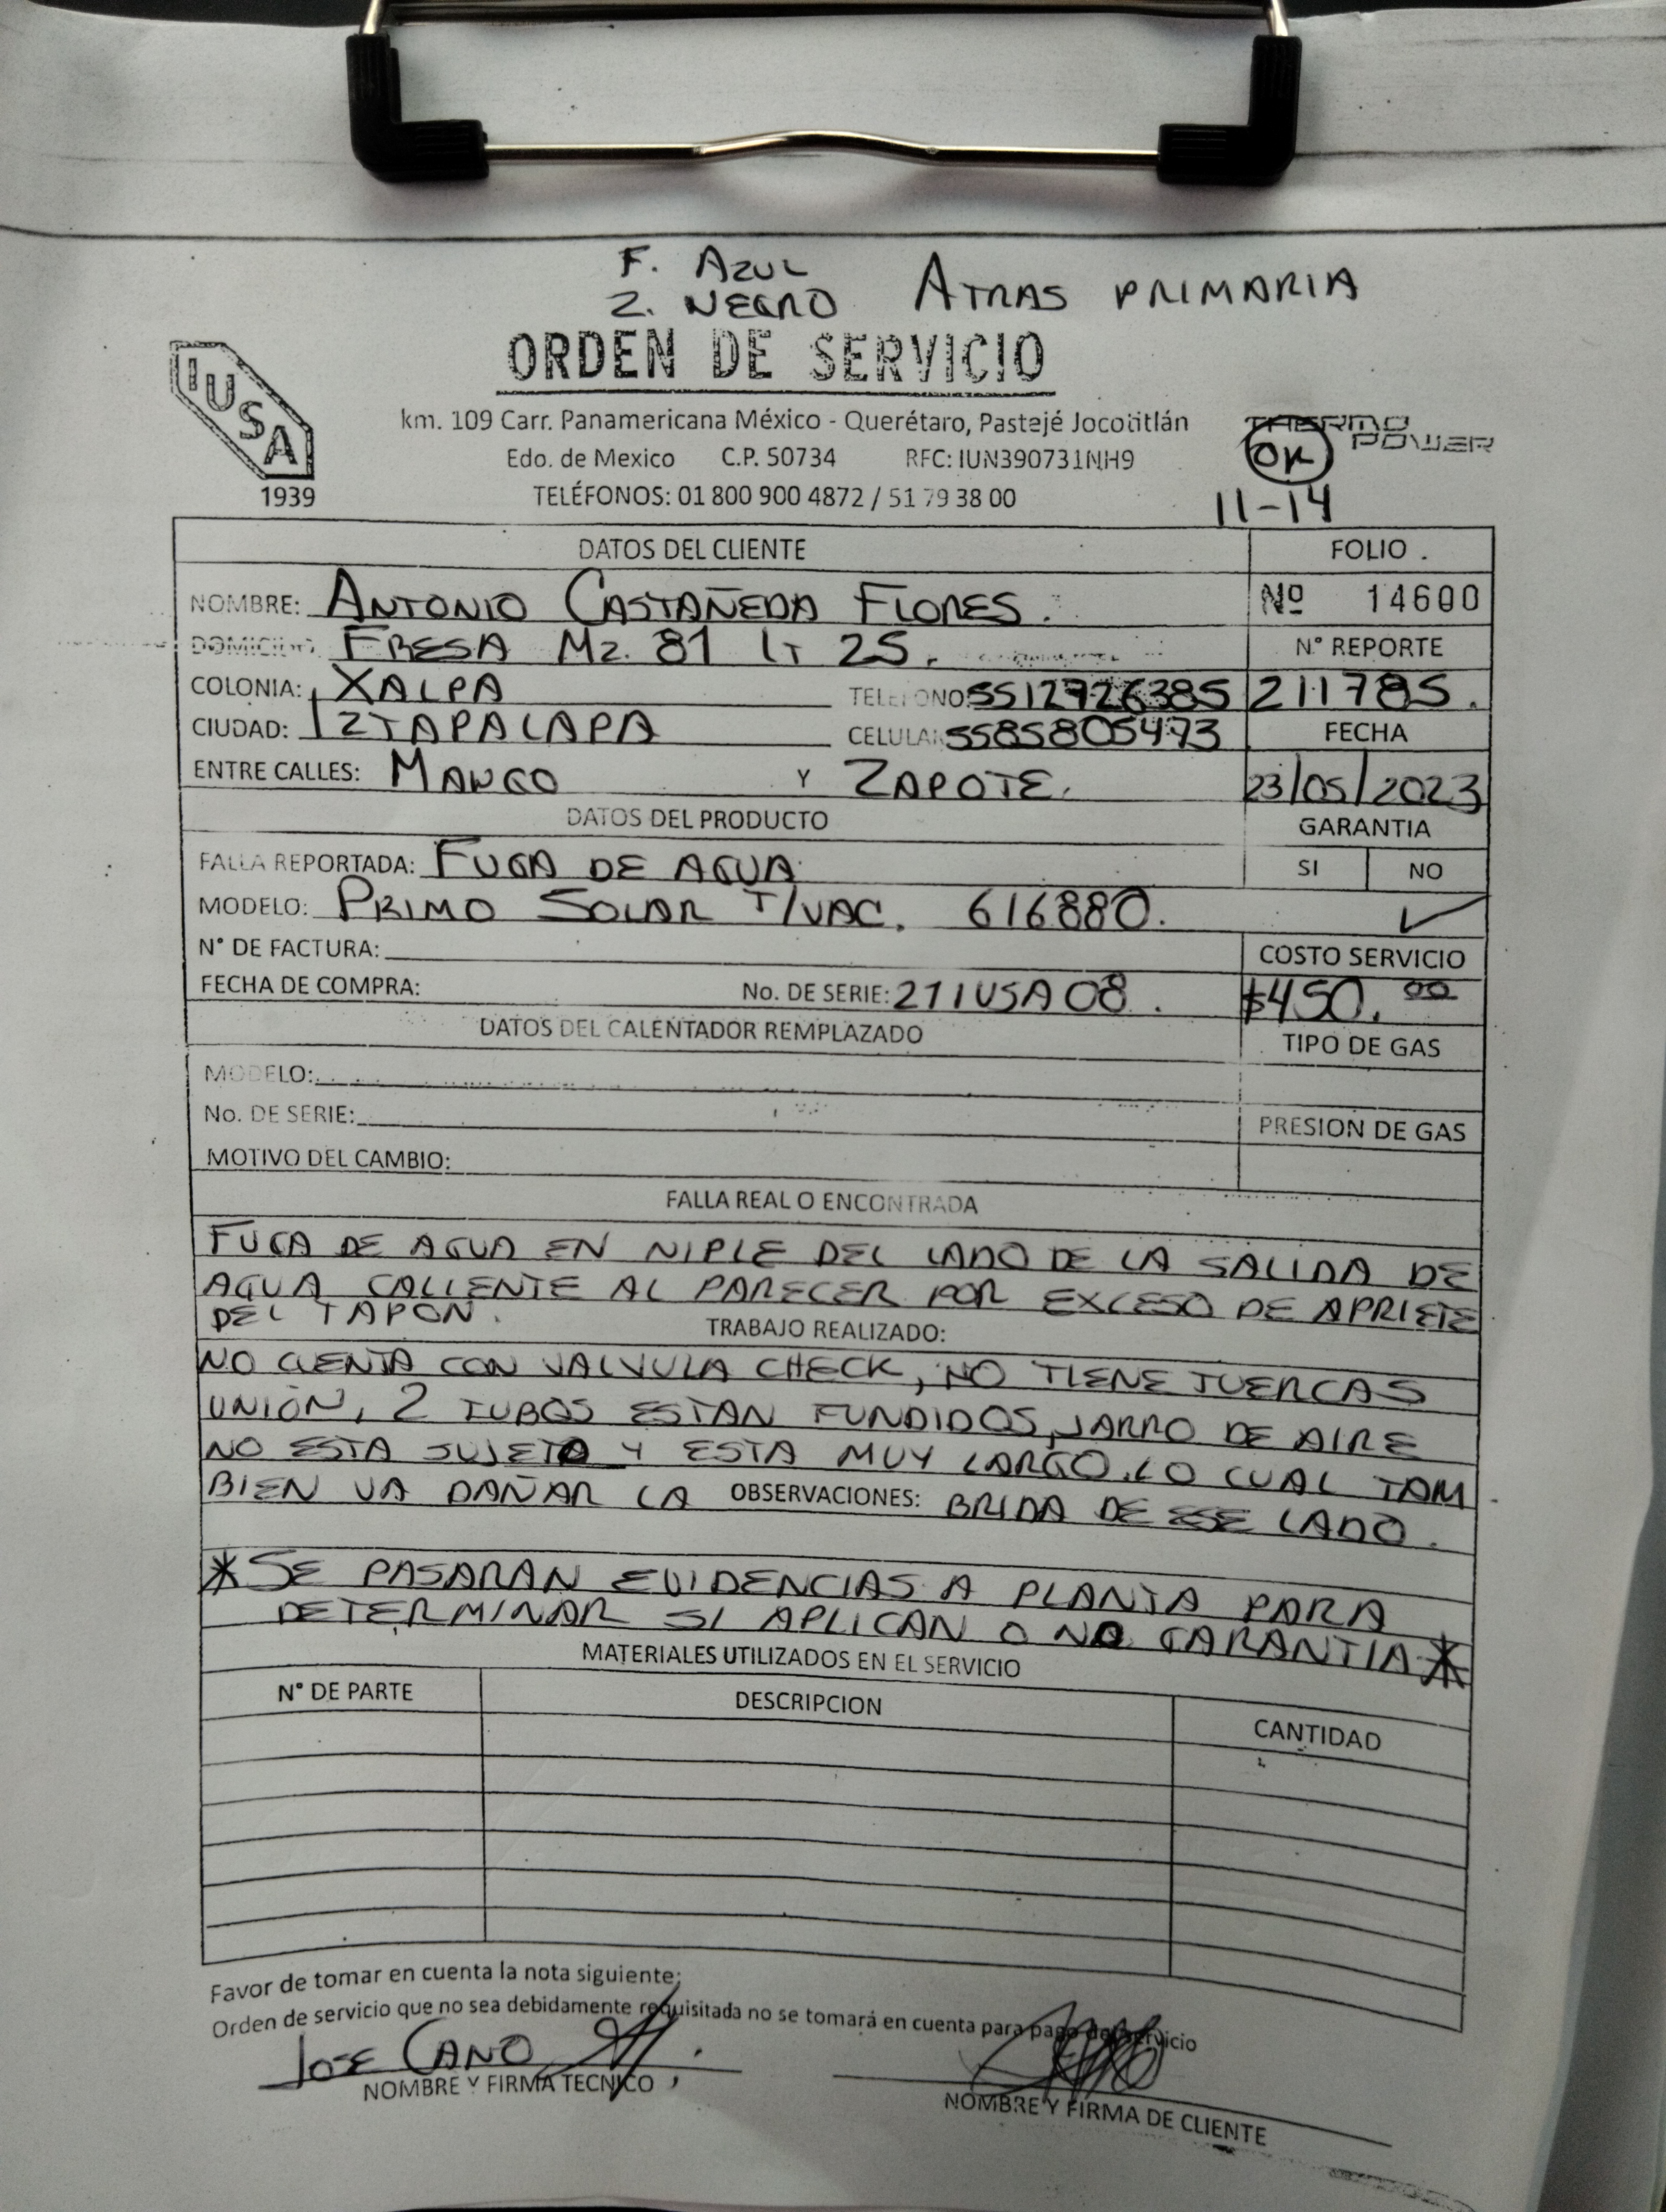 F. AZUL
Z. NEGRO ATRAS PRIMARIA
ORDEN DE SERVICIO
IUSA
1939
km. 109 Carr. Panamericana México - Querétaro, Pastejé Jocotitlán
Edo. de Mexico C.P. 50734 RFC: IUN390731NH9
TELÉFONOS: 01 800 900 4872 / 51 79 38 00
THERMO POWER
OK
11-14
DATOS DEL CLIENTE FOLIO
NOMBRE: ANTONIO CASTAÑEDA FLORES. Nº 14600
DOMICILIO: FRESA Mz. 81 LT 25. N° REPORTE
COLONIA: XALPA TELEFONO: 5512726385 211785.
CIUDAD: IZTAPALAPA CELULAR: 5585805473 FECHA
ENTRE CALLES: MANGO Y ZAPOTE. 23/05/2023
DATOS DEL PRODUCTO GARANTIA
FALLA REPORTADA: FUGA DE AGUA SI NO
MODELO: PRIMO SOLAR T/VAC. 616880. ✓
N° DE FACTURA: COSTO SERVICIO
FECHA DE COMPRA: No. DE SERIE: 21IUSA08. $450.00
DATOS DEL CALENTADOR REMPLAZADO TIPO DE GAS
MODELO:
No. DE SERIE: PRESION DE GAS
MOTIVO DEL CAMBIO:
FALLA REAL O ENCONTRADA
FUGA DE AGUA EN NIPLE DEL LADO DE LA SALIDA DE
AGUA CALIENTE AL PARECER POR EXCESO DE APRIETE
DEL TAPON. TRABAJO REALIZADO:
NO CUENTA CON VALVULA CHECK, NO TIENE TUERCAS
UNIÓN, 2 TUBOS ESTAN FUNDIDOS, JARRO DE AIRE
NO ESTA SUJETO Y ESTA MUY LARGO. LO CUAL TAM
BIEN VA DAÑAR LA OBSERVACIONES: BRIDA DE ESE LADO.
*SE PASARAN EVIDENCIAS A PLANTA PARA
DETERMINAR SI APLICAN O NO GARANTIA*
MATERIALES UTILIZADOS EN EL SERVICIO
N° DE PARTE DESCRIPCION CANTIDAD
Favor de tomar en cuenta la nota siguiente;
Orden de servicio que no sea debidamente requisitada no se tomará en cuenta para pago de servicio
JOSE CANO
NOMBRE Y FIRMA TECNICO
NOMBRE Y FIRMA DE CLIENTE